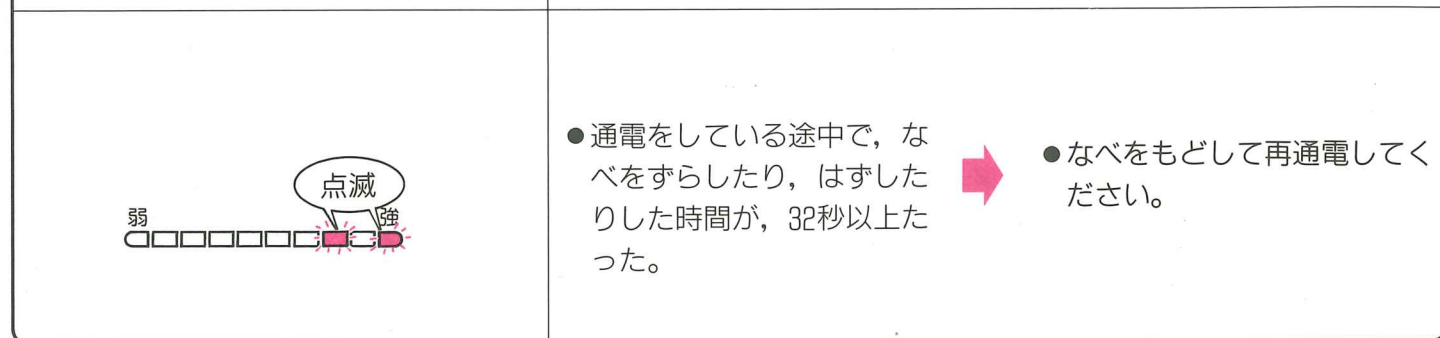 点滅
弱
強
●通電をしている途中で，な
べをずらしたり，はずした
りした時間が，32秒以上た
った。
●なべをもどして再通電してく
ださい。